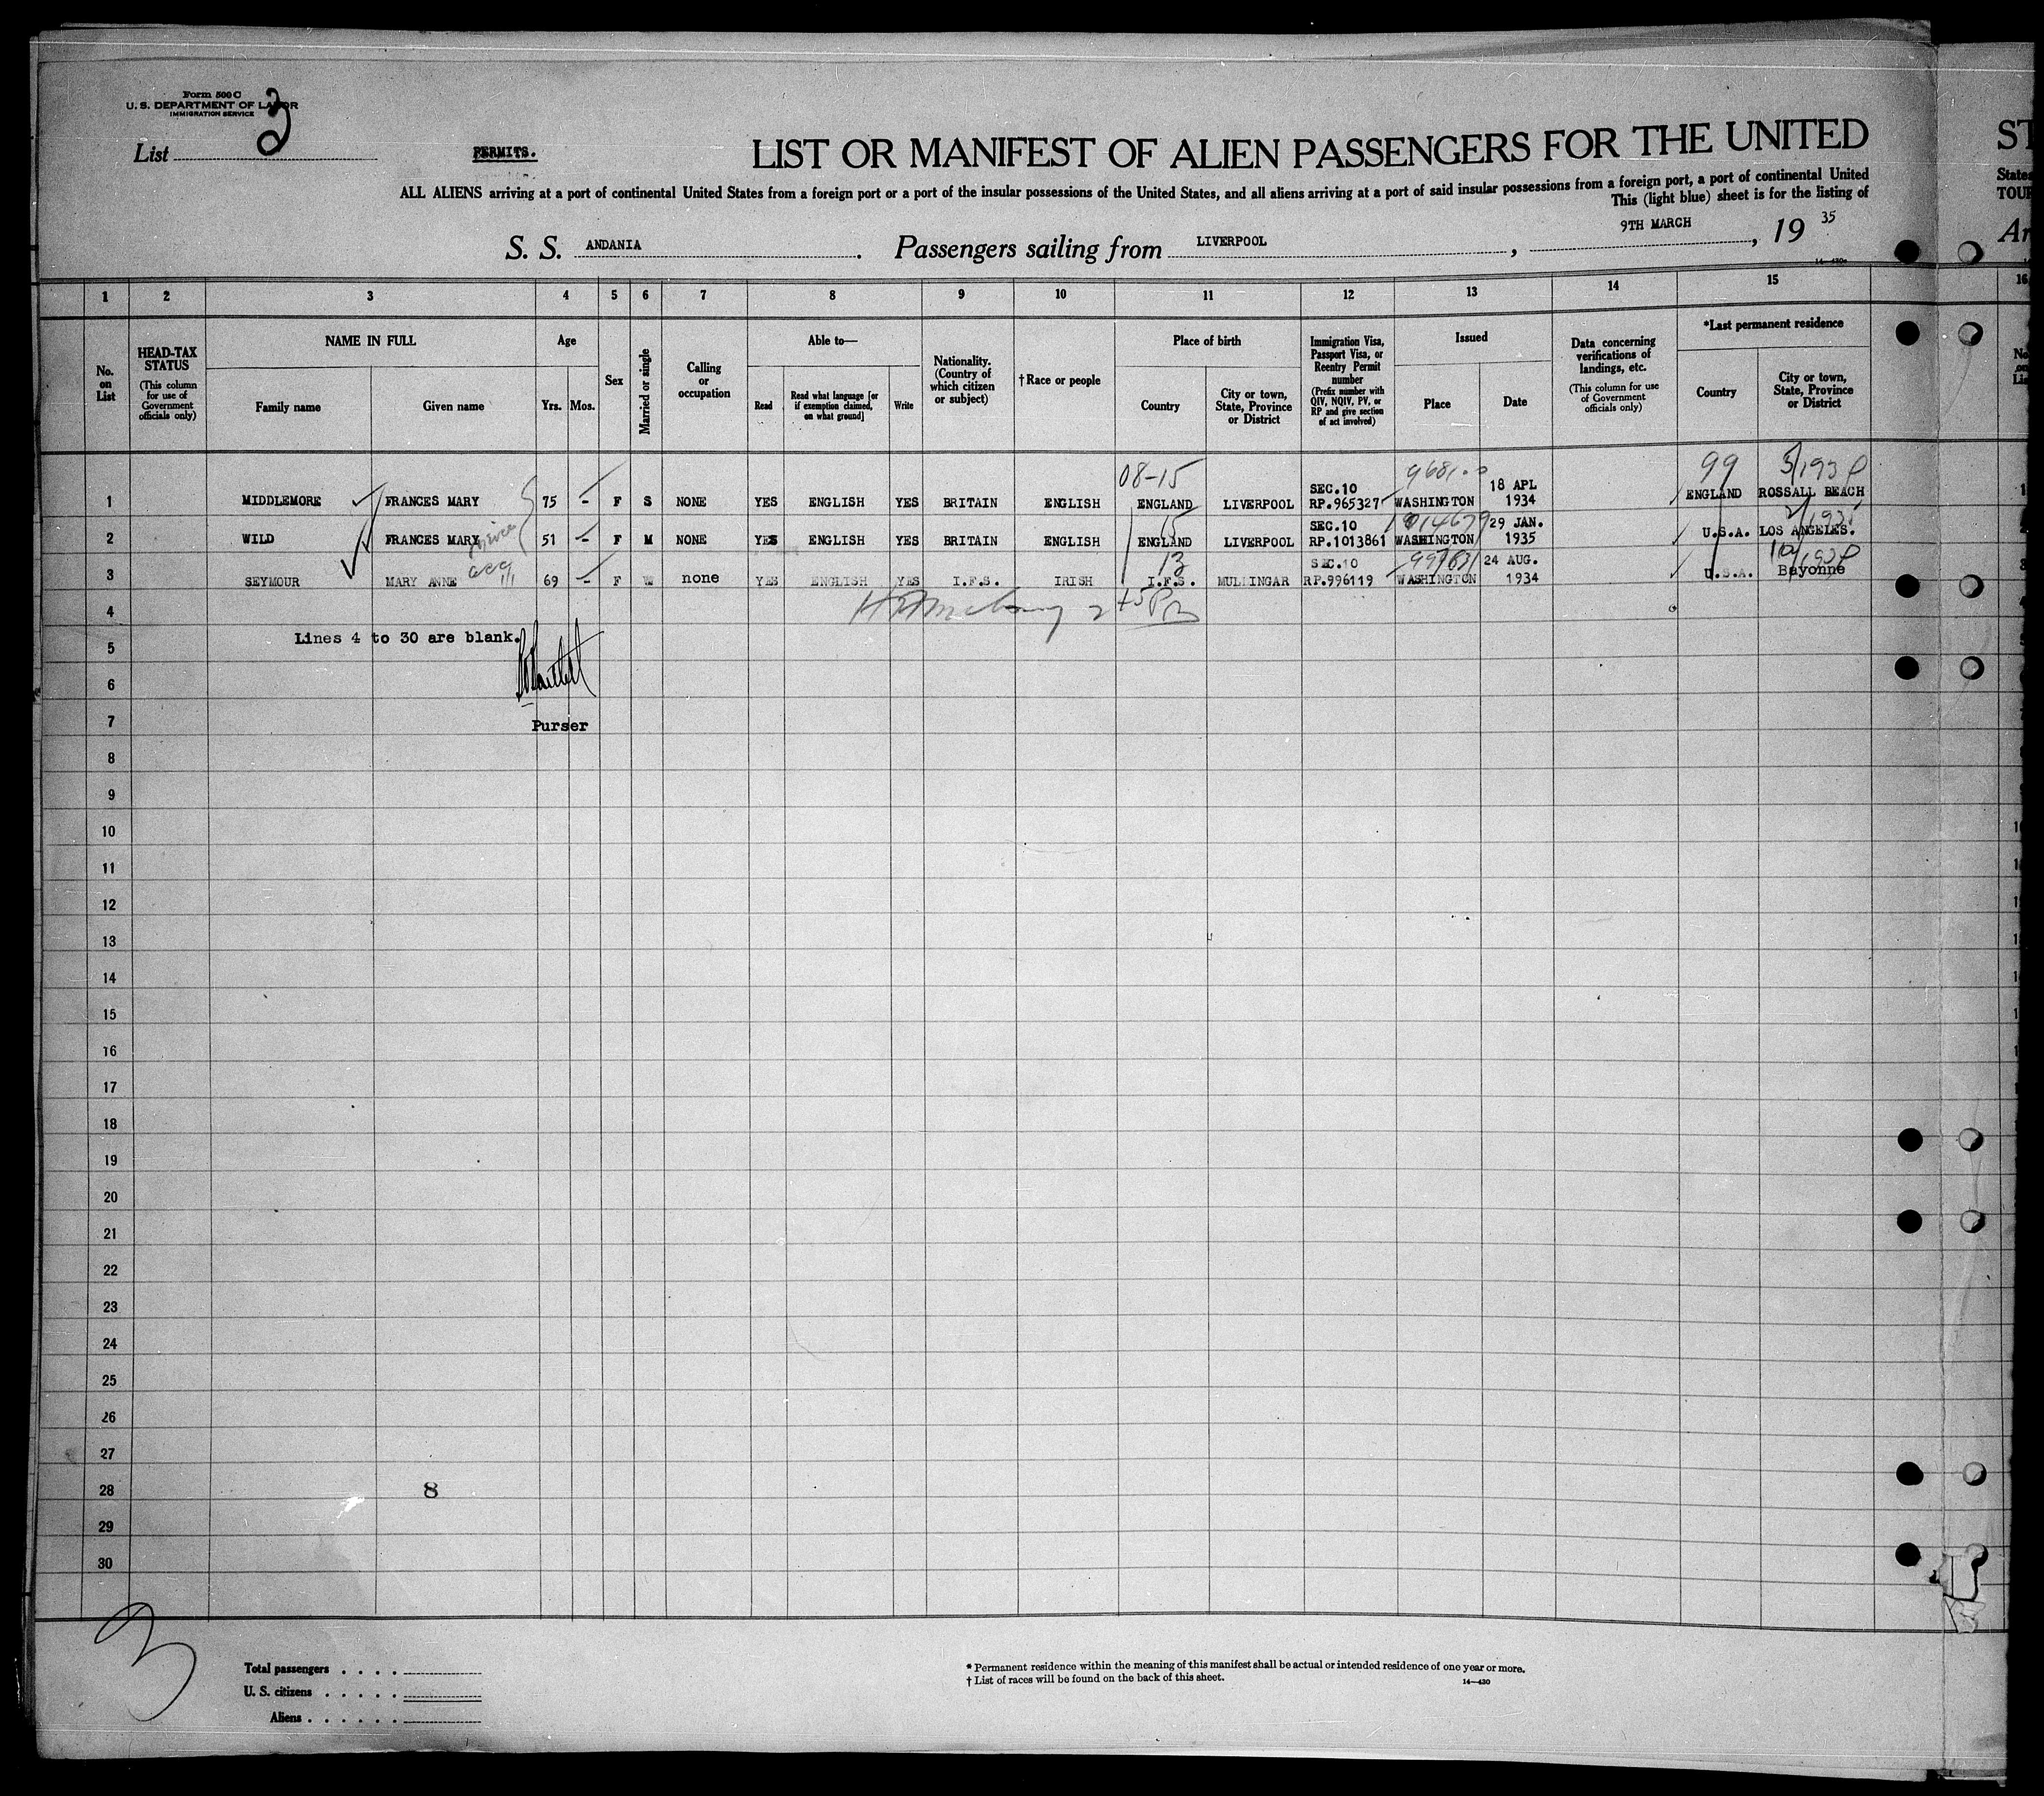 Form 500 C
U. S. DEPARTMENT OF LABOR
IMMIGRATION SERVICE
List 3
PERMITS.
LIST OR MANIFEST OF ALIEN PASSENGERS FOR THE UNITED
ST
ALL ALIENS arriving at a port of continental United States from a foreign port or a port of the insular possessions of the United States, and all aliens arriving at a port of said insular possessions from a foreign port, a port of continental United
States
This (light blue) sheet is for the listing of
TOUR
S. S. ANDANIA. Passengers sailing from LIVERPOOL, 9TH MARCH, 19 35
Ar
14—430a
1 2 3 4 5 6 7 8 9 10 11 12 13 14 15 16
No. on List
HEAD-TAX STATUS (This column for use of Government officials only)
NAME IN FULL
Family name Given name
Age
Yrs. Mos.
Sex
Married or single
Calling or occupation
Able to—
Read Read what language [or if exemption claimed, on what ground] Write
Nationality. (Country of which citizen or subject)
†Race or people
Place of birth
Country City or town, State, Province or District
Immigration Visa, Passport Visa, or Reentry Permit number (Prefix number with QIV, NQIV, PV, or RP and give section of act involved)
Issued
Place Date
Data concerning verifications of landings, etc. (This column for use of Government officials only)
*Last permanent residence
Country City or town, State, Province or District
08-15 99
1 MIDDLEMORE FRANCES MARY 75 - F S NONE YES ENGLISH YES BRITAIN ENGLISH ENGLAND LIVERPOOL SEC.10 RP.965327 WASHINGTON 18 APL 1934 ENGLAND ROSSALL BEACH
15
2 WILD FRANCES MARY 51 - F M NONE YES ENGLISH YES BRITAIN ENGLISH ENGLAND LIVERPOOL SEC.10 RP.1013861 WASHINGTON 29 JAN. 1935 U.S.A. LOS ANGELES.
13
3 SEYMOUR MARY ANNE 69 - F W none YES ENGLISH YES I.F.S. IRISH I.F.S. MULLINGAR SEC.10 RP.996119 WASHINGTON 24 AUG. 1934 U.S.A. Bayonne
4
Lines 4 to 30 are blank.
5
6
7
Purser
8
9
10
11
12
13
14
15
16
17
18
19
20
21
22
23
24
25
26
27
28
8
29
30
3
Total passengers . . . .
U. S. citizens . . . . .
Aliens . . . . . .
* Permanent residence within the meaning of this manifest shall be actual or intended residence of one year or more.
† List of races will be found on the back of this sheet.
14—430